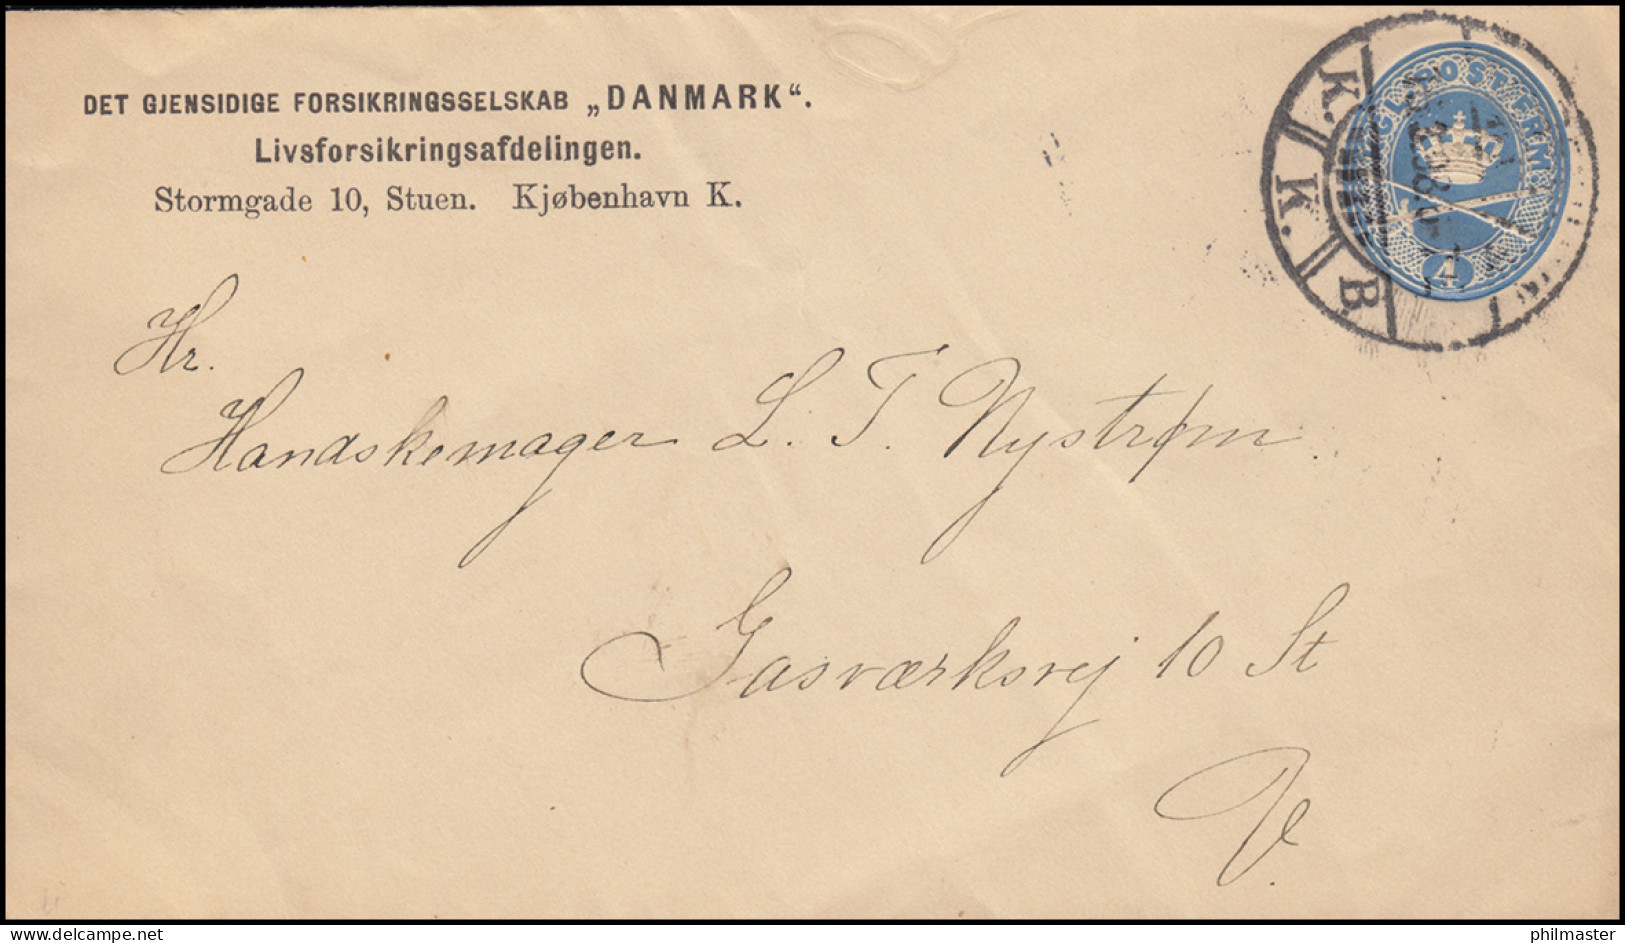 DET GJENSIDIGE FORSIKRINGSSELSKAB „DANMARK“.
Livsforsikringsafdelingen.
Stormgade 10, Stuen. Kjøbenhavn K.
K. K. B.
4
Hr.
Handskemager L. T. Nystrøm.
Gasværksvej 10 St
V.
delcampe.net
philmaster